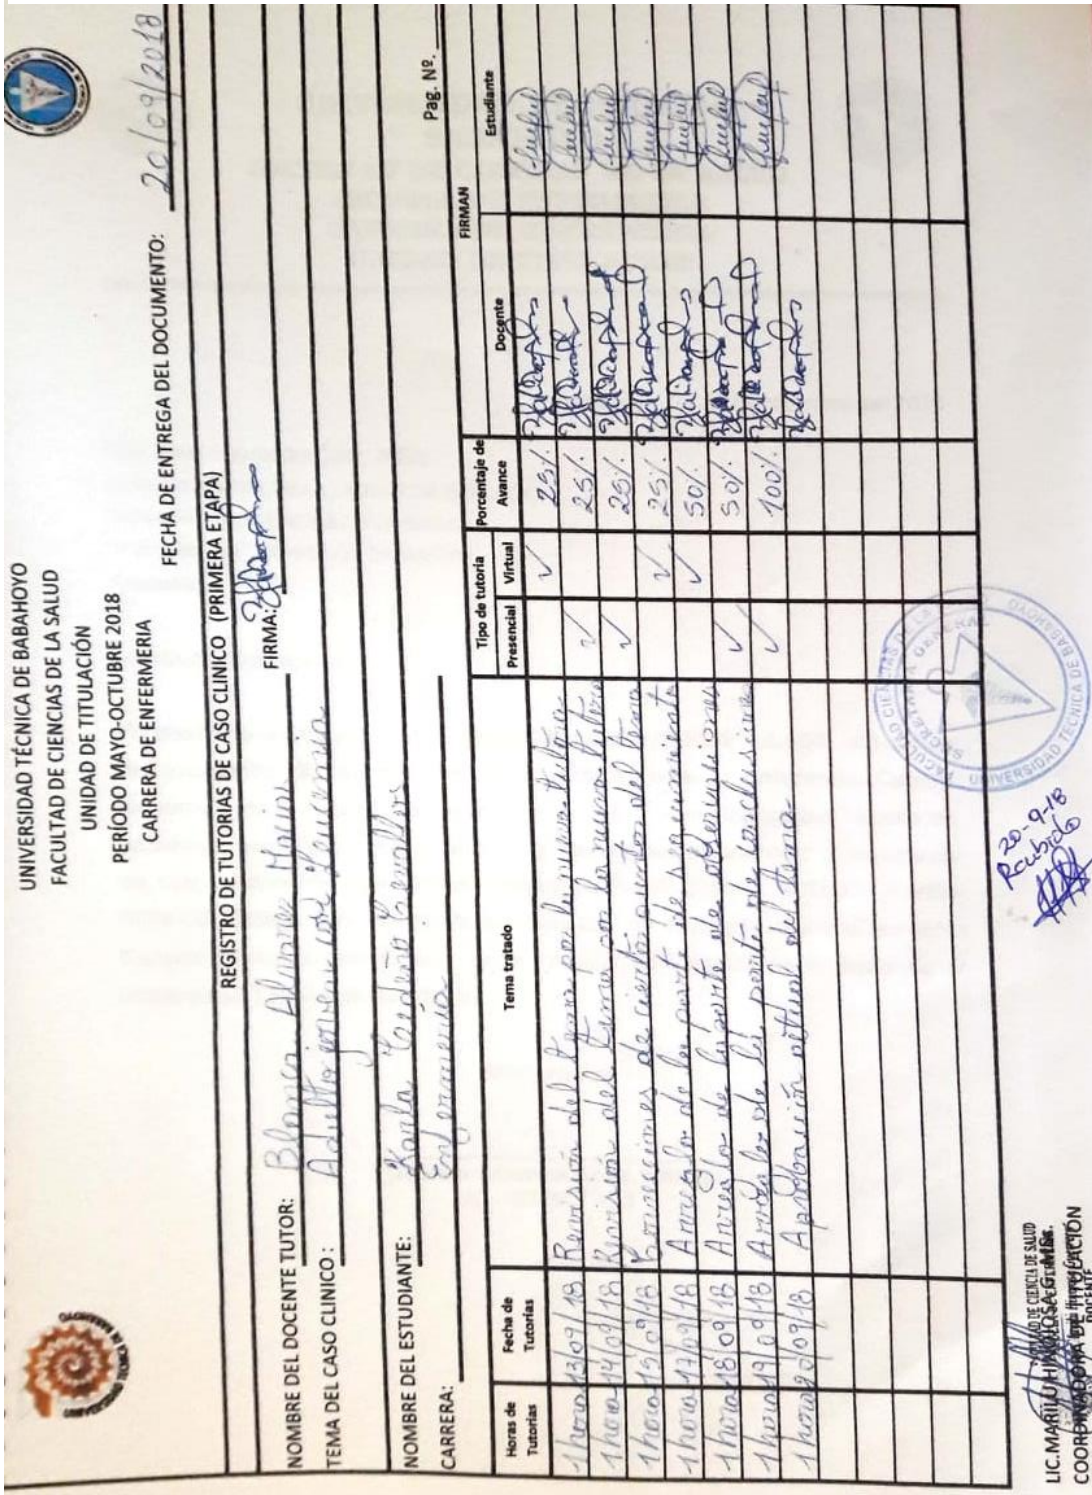 UNIVERSIDAD TÉCNICA DE BABAHOYO
FACULTAD DE CIENCIAS DE LA SALUD
UNIDAD DE TITULACIÓN
PERÍODO MAYO-OCTUBRE 2018
CARRERA DE ENFERMERIA
FECHA DE ENTREGA DEL DOCUMENTO: 20/09/2018
REGISTRO DE TUTORIAS DE CASO CLINICO (PRIMERA ETAPA)
NOMBRE DEL DOCENTE TUTOR: Blanca Alvarez FIRMA:
TEMA DEL CASO CLINICO : Adulto joven con Leucemia
NOMBRE DEL ESTUDIANTE: Karla Cedeño Cevallos
CARRERA: Enfermeria Pag. Nº.
Horas de Tutorias Fecha de Tutorias Tema tratado Tipo de tutoria Porcentaje de Avance FIRMAN
Presencial Virtual Docente Estudiante
1 hora 13/09/18 Revisión del tema por la nueva tutora ✓ 25%
1 hora 14/09/18 Revisión del tema con la nueva tutora ✓ 25%
1 hora 15/09/18 Correcciones de ciertos puntos del tema ✓ 25%
1 hora 17/09/18 Arreglo de la parte de seguimiento ✓ 25%
1 hora 18/09/18 Arreglo de la parte de observaciones ✓ 50%
1 hora 19/09/18 Arreglo de la parte de conclusiones ✓ 50%
1 hora 20/09/18 Aprobación actual del tema ✓ 100%
FACULTAD CIENCIAS DE LA
SECRETARIA GENERAL
UNIVERSIDAD TÉCNICA DE BABAHOYO
20-9-18
Recibido
LIC. MARILU HINOJOSA G. MSc.
COORDINADORA DE TITULACIÓN
DOCENTE